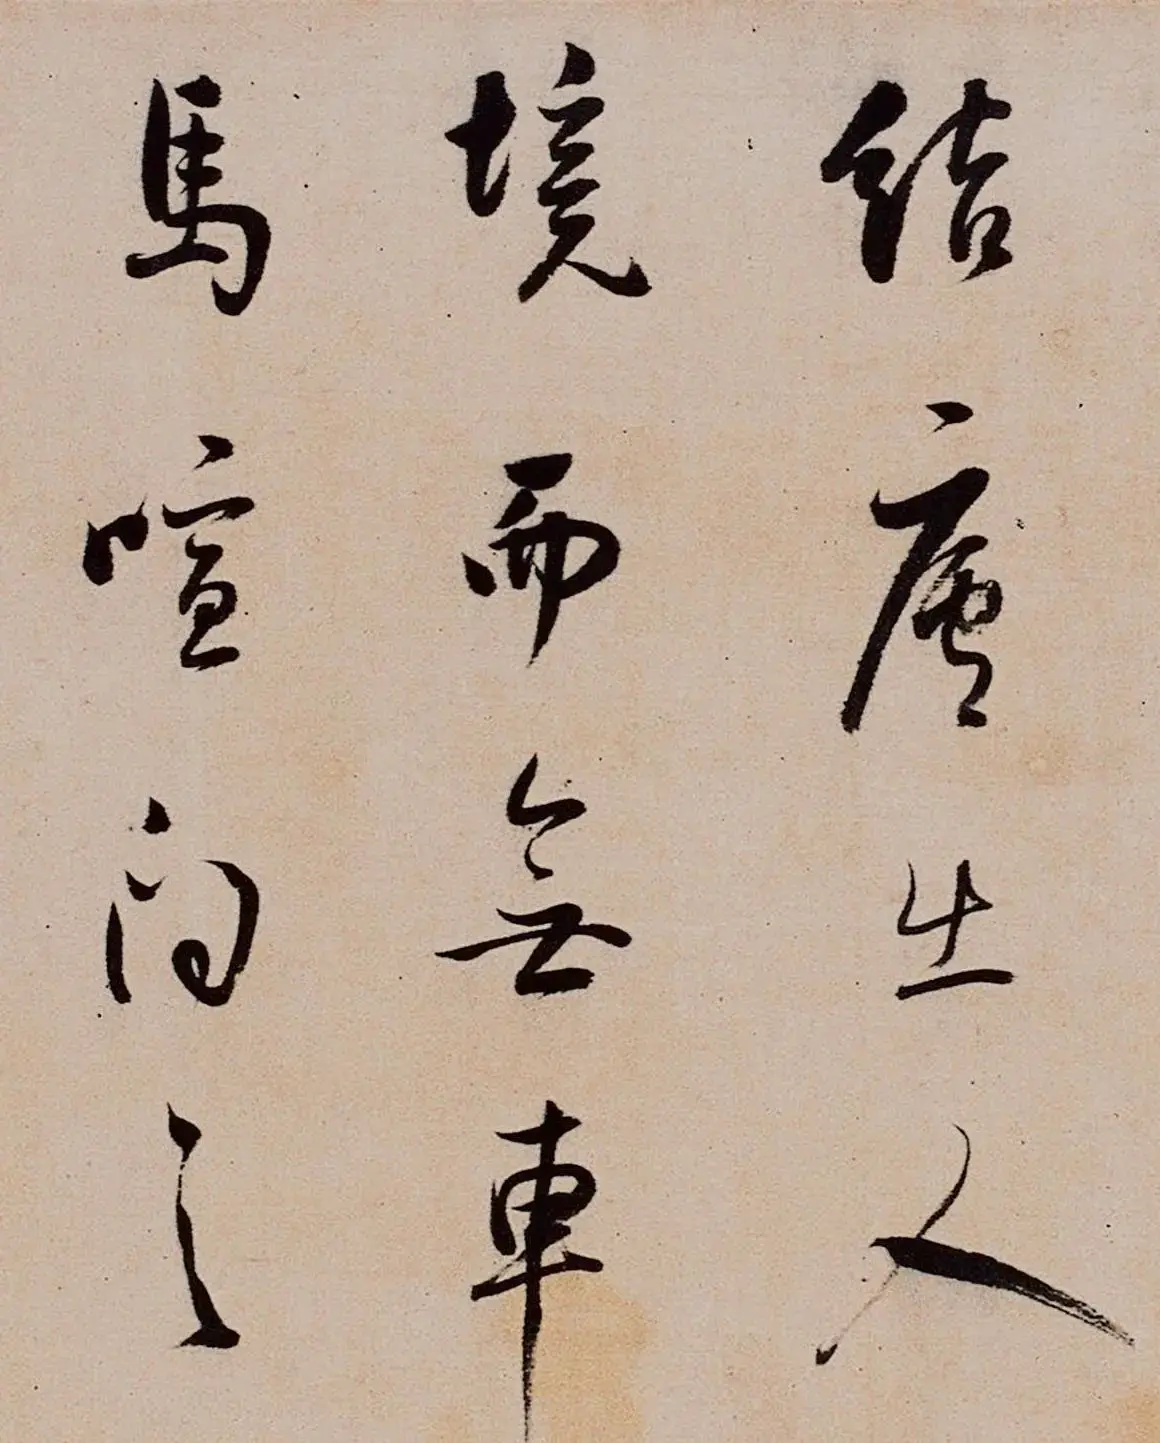 結廬在人
境而無車
馬喧問之